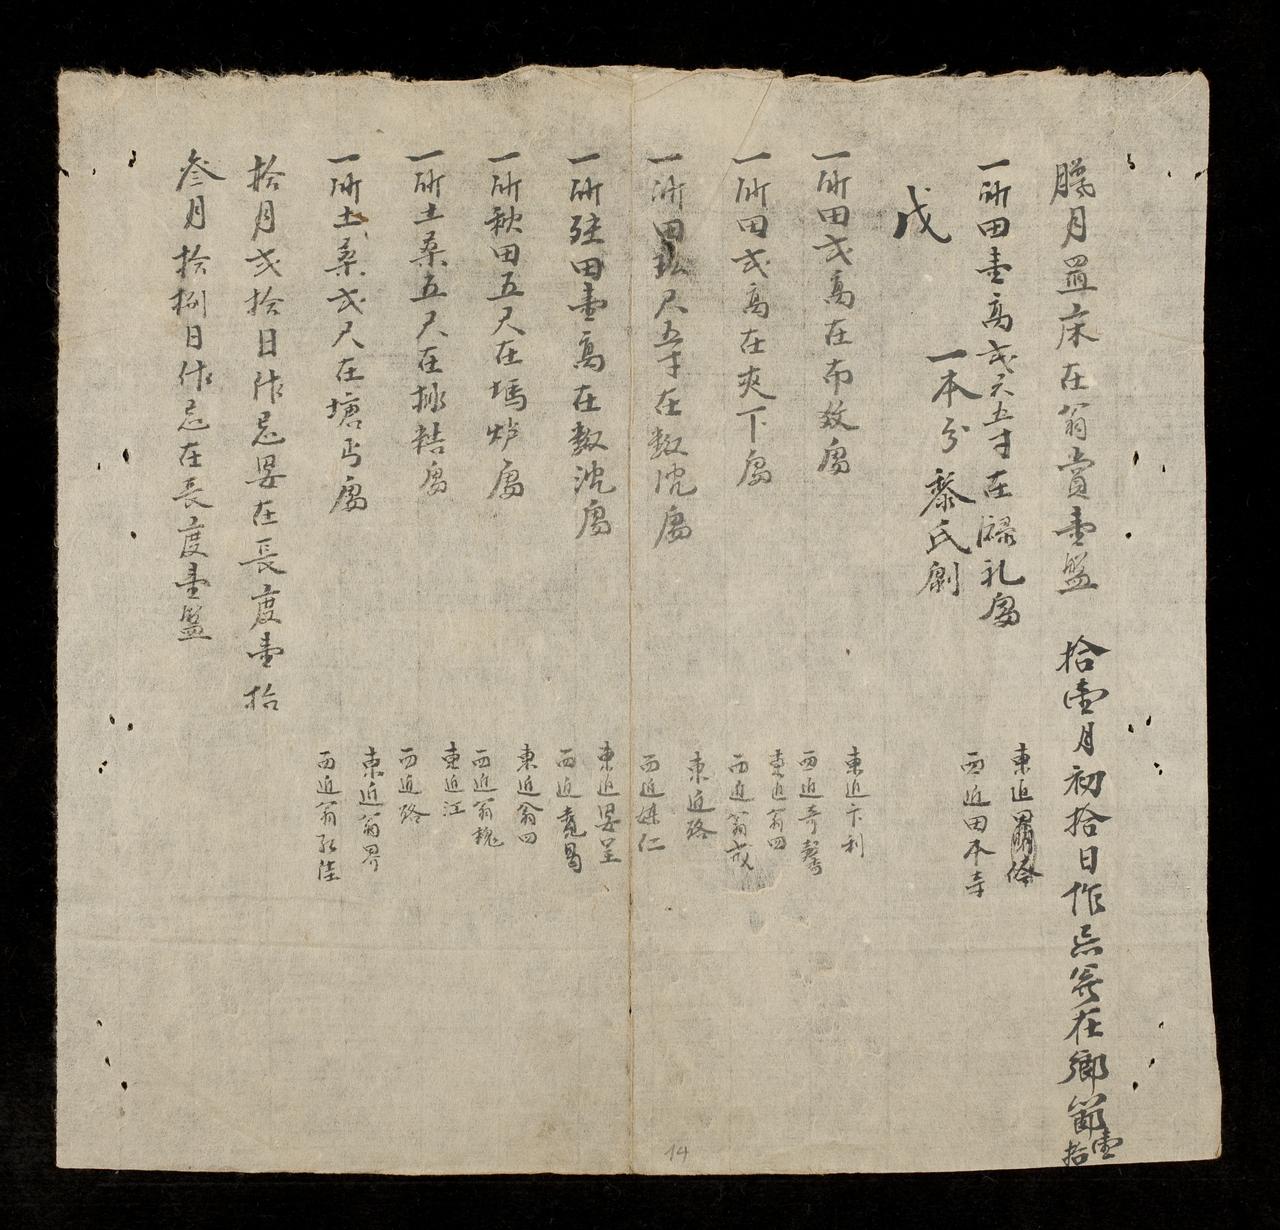 臘月置床在翁賞壹盤 拾壹月初拾日作忌翁在鄉節壹拾
一所田壹高弍尺五寸在祿礼處
東近
西近田本寺
一本分黎氏
戊
一所田弍高在布效處
東近卞利
西近奇馨
一所田弍高在夾下處
東近翁四
西近翁戎
一所田 尺五寸在數沈處
東近路
西近妹仁
一所 田壹高在數沈處
東近 呈
西近
一所秋田五尺在塢炉處
東近翁四
西近翁槐
一所土桑五尺在 處
東近江
西近路
一所土桑弍尺在塘丐處
東近翁界
西近翁
拾月弍拾日作忌 在長度壹拾
叁月拾捌日作忌在長度壹盤
14